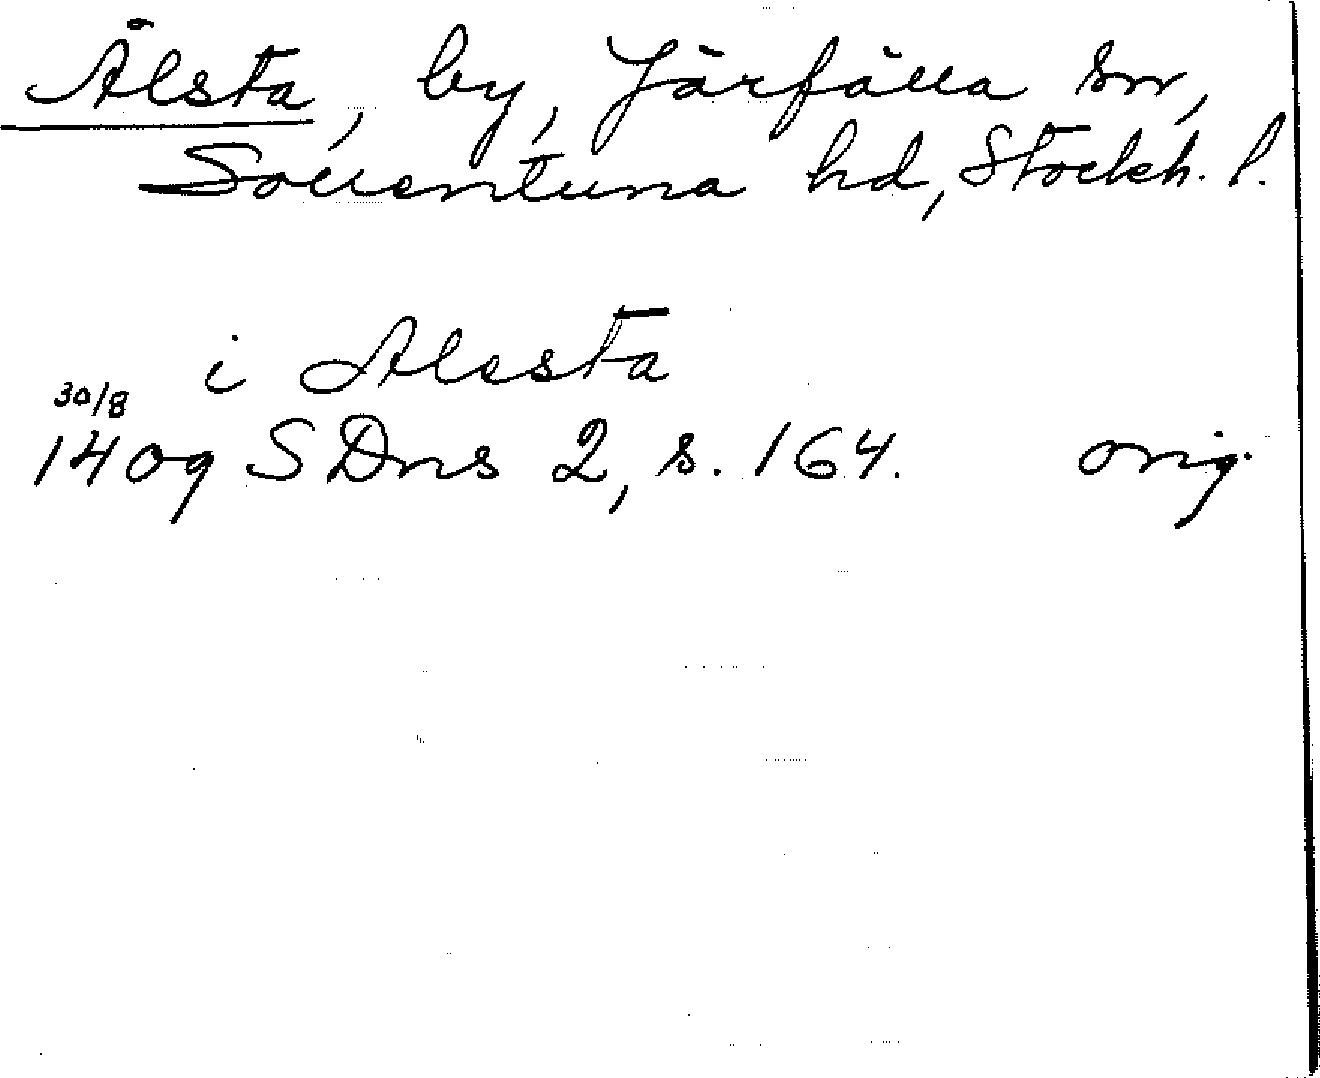 Ålsta, by, Järfälla sn,
Sollentuna hd, Stockh. l.
i Alesta
30/8
1409 SDns 2, s. 164. orig.